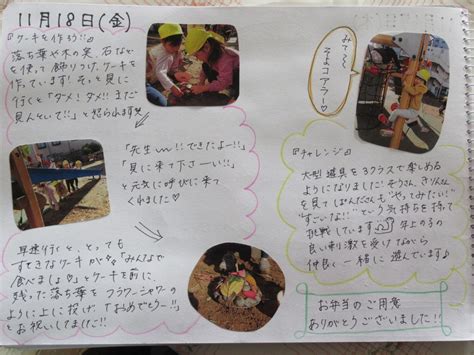 11月18日(金)
『ケーキを作ろう!!』
落ち葉や木の実、石など
を使って飾りつけ、ケーキを
作っています!そっと見に
行くと「ダメ!ダメ!!まだ
見んといて!!」と怒られます
「先生〜!!できたよー!!」
「見に来て下さーい!!」
と元気に呼びに来て
くれました♡
早速行くと、とっても
すてきなケーキが「みんなで
食べましょ♡」とケーキを前に
残った落ち葉をフラワーシャワー
のように上に投げ「おめでとうー!!」
とお祝いしてました!!
みて〜
そよコアラー♡
『チャレンジ』
大型遊具を3クラスで楽しめる
ようになりました!ぞうさん、きりんさん
を見てぱんださんも"や、てみたい"
"すごいな!!"という気持ちを持て
挑戦しています 年上の子の
良い刺激を受けながら
仲良く一緒に遊んでいます♪
お弁当のご用意
ありがとうございました!